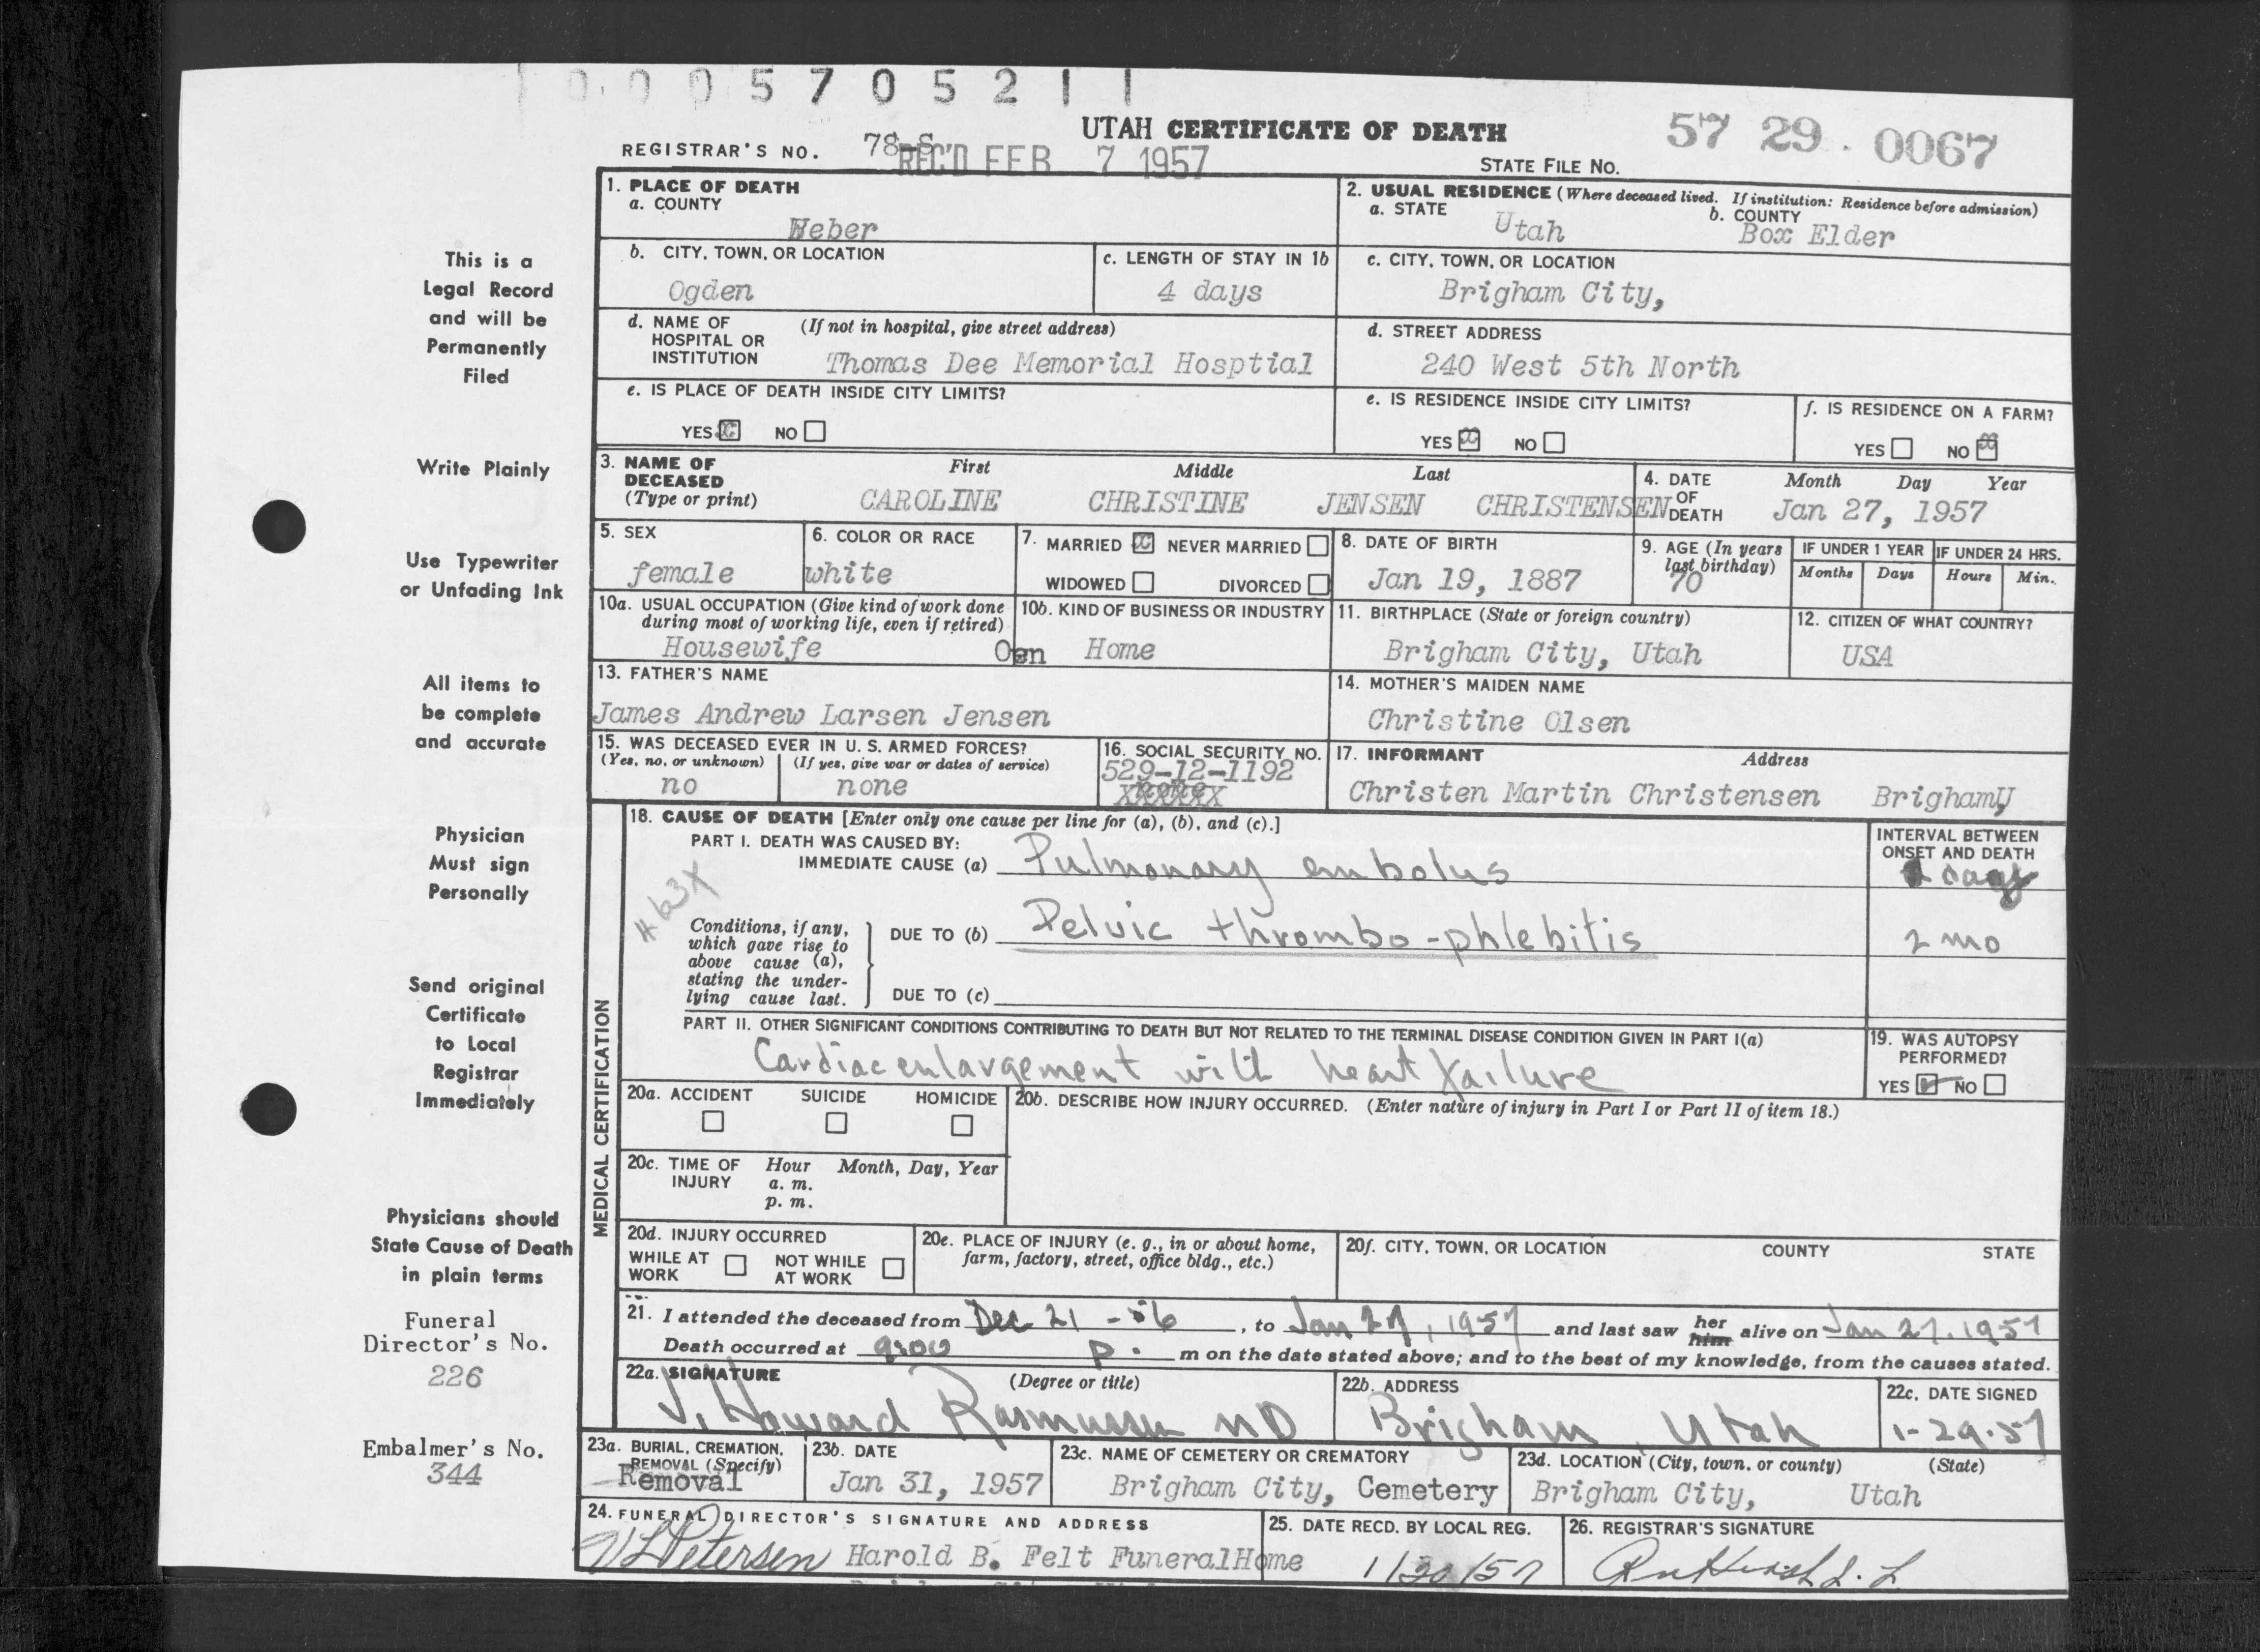 0 0 0 5 7 0 5 2 1 1
UTAH CERTIFICATE OF DEATH
57 29 . 0067
REGISTRAR'S NO. 78-S
REC'D FEB 7 1957
STATE FILE NO.
1. PLACE OF DEATH
a. COUNTY
Weber
2. USUAL RESIDENCE (Where deceased lived. If institution: Residence before admission)
a. STATE Utah b. COUNTY Box Elder
b. CITY, TOWN, OR LOCATION
Ogden
c. LENGTH OF STAY IN 1b
4 days
c. CITY, TOWN, OR LOCATION
Brigham City,
d. NAME OF HOSPITAL OR INSTITUTION (If not in hospital, give street address)
Thomas Dee Memorial Hosptial
d. STREET ADDRESS
240 West 5th North
e. IS PLACE OF DEATH INSIDE CITY LIMITS?
YES x NO
e. IS RESIDENCE INSIDE CITY LIMITS?
YES x NO
f. IS RESIDENCE ON A FARM?
YES NO x
3. NAME OF DECEASED (Type or print)
First Middle Last
CAROLINE CHRISTINE JENSEN CHRISTENSEN
4. DATE OF DEATH
Month Day Year
Jan 27, 1957
5. SEX
female
6. COLOR OR RACE
white
7. MARRIED x NEVER MARRIED
WIDOWED DIVORCED
8. DATE OF BIRTH
Jan 19, 1887
9. AGE (In years last birthday)
70
IF UNDER 1 YEAR
Months Days
IF UNDER 24 HRS.
Hours Min.
10a. USUAL OCCUPATION (Give kind of work done during most of working life, even if retired)
Housewife
10b. KIND OF BUSINESS OR INDUSTRY
Home
11. BIRTHPLACE (State or foreign country)
Brigham City, Utah
12. CITIZEN OF WHAT COUNTRY?
USA
13. FATHER'S NAME
James Andrew Larsen Jensen
14. MOTHER'S MAIDEN NAME
Christine Olsen
15. WAS DECEASED EVER IN U. S. ARMED FORCES?
(Yes, no, or unknown) (If yes, give war or dates of service)
no none
16. SOCIAL SECURITY NO.
529-12-1192
17. INFORMANT Address
Christen Martin Christensen Brigham,
MEDICAL CERTIFICATION
18. CAUSE OF DEATH [Enter only one cause per line for (a), (b), and (c).]
PART I. DEATH WAS CAUSED BY:
IMMEDIATE CAUSE (a) Pulmonary embolus
INTERVAL BETWEEN ONSET AND DEATH
Conditions, if any, which gave rise to above cause (a), stating the underlying cause last.
DUE TO (b) Pelvic thrombo-phlebitis
2 mo
DUE TO (c)
463X
PART II. OTHER SIGNIFICANT CONDITIONS CONTRIBUTING TO DEATH BUT NOT RELATED TO THE TERMINAL DISEASE CONDITION GIVEN IN PART I(a)
Cardiac enlargement with heart failure
19. WAS AUTOPSY PERFORMED?
YES ✓ NO
20a. ACCIDENT SUICIDE HOMICIDE
20b. DESCRIBE HOW INJURY OCCURRED. (Enter nature of injury in Part I or Part II of item 18.)
20c. TIME OF INJURY
Hour Month, Day, Year
a. m.
p. m.
20d. INJURY OCCURRED
WHILE AT WORK NOT WHILE AT WORK
20e. PLACE OF INJURY (e. g., in or about home, farm, factory, street, office bldg., etc.)
20f. CITY, TOWN, OR LOCATION COUNTY STATE
21. I attended the deceased from Dec 21 - 56, to Jan 27, 1957 and last saw her him alive on Jan 27. 1957
Death occurred at 9:00 p. m on the date stated above; and to the best of my knowledge, from the causes stated.
22a. SIGNATURE (Degree or title)
J. Howard Rasmussen MD
22b. ADDRESS
Brigham, Utah
22c. DATE SIGNED
1-29-57
23a. BURIAL, CREMATION, REMOVAL (Specify)
Removal
23b. DATE
Jan 31, 1957
23c. NAME OF CEMETERY OR CREMATORY
Brigham City, Cemetery
23d. LOCATION (City, town, or county) (State)
Brigham City, Utah
24. FUNERAL DIRECTOR'S SIGNATURE AND ADDRESS
V L Petersen Harold B. Felt FuneralHome
25. DATE RECD. BY LOCAL REG.
1/30/57
26. REGISTRAR'S SIGNATURE
This is a
Legal Record
and will be
Permanently
Filed
Write Plainly
Use Typewriter
or Unfading Ink
All items to
be complete
and accurate
Physician
Must sign
Personally
Send original
Certificate
to Local
Registrar
Immediately
Physicians should
State Cause of Death
in plain terms
Funeral
Director's No.
226
Embalmer's No.
344